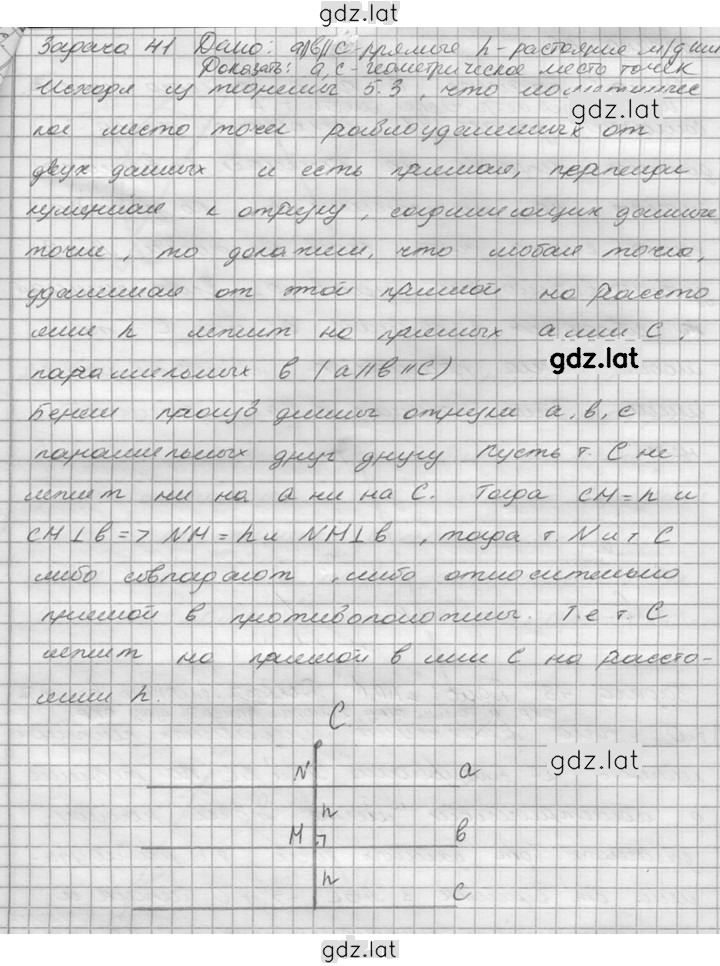 gdz.lat
Задача 41 Дано: a||b||c-прямые h-растояние м/д ним
Доказать: a, c-геометрическое место точек
Исходя из теоремы 5.3, что
gdz.lat
ное место точек равноудаленных от
двух данных и есть прямая, перпенди
кулярная к отрезку, соединяющих данные
точки, то докажем, что любая точка,
удаленная от этой прямой на рассто
янии h лежит на прямых a или c,
gdz.lat
параллельных b (a||b||c)
Берем произв длины отрезки a, b, c
параллельных друг другу Пусть т. C не
лежит ни на a ни на c. Тогда CM = h и
CM⊥b => NM = h и NM⊥b, тогда т. N и т C
либо совпадают, либо относительно
прямой b противоположны. Т.е т. C
лежит на прямой b или c на рассто-
янии h.
C
gdz.lat
N a
h
M b
h
c
gdz.lat